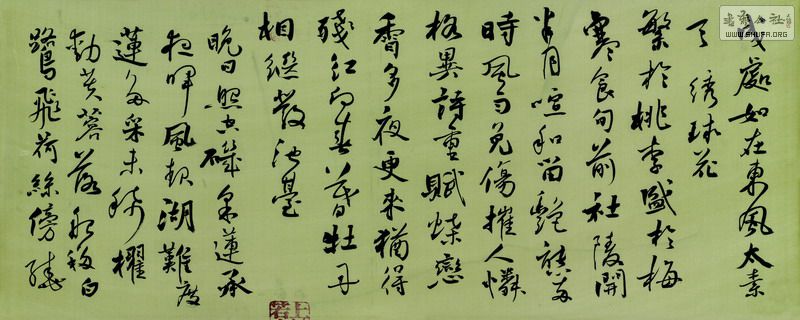 處如在東風太素
綉球花
繁於桃李盛於梅
寒食旬前社陵開
半月喧和留艷態兩
時風雨免傷摧人憐
格異詩重賦蝶戀
香多夜更来猶得
殘紅向春暮牡丹
相繼發池臺
晚日照空磯采蓮承
晖風起湖難度
蓮多采未稀櫂
動芙蓉落船移白
鷺飛荷絲傍繞
書法公社
WWW.SHUFA.ORG